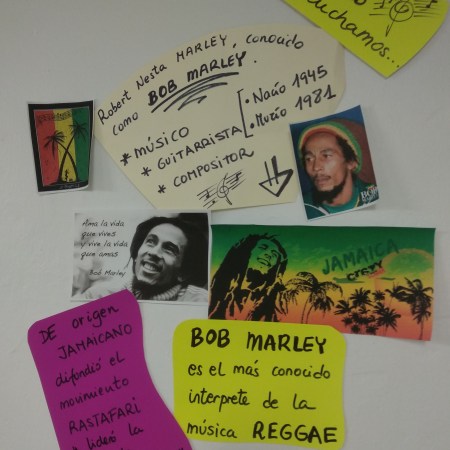 cuchamos...
Robert Nesta MARLEY, conocido
como BOB MARLEY.
* MÚSICO
* GUITARRISTA
* COMPOSITOR
• Nació 1945
• Murió 1981
Ama la vida
que vives
vive la vida
que amas
Bob Marley
JAMAICA
CRAZY
DE origen
JAMAICANO
difundió el
movimiento
RASTAFARI
* lideró la
BOB MARLEY
es el más conocido
interprete de la
música REGGAE